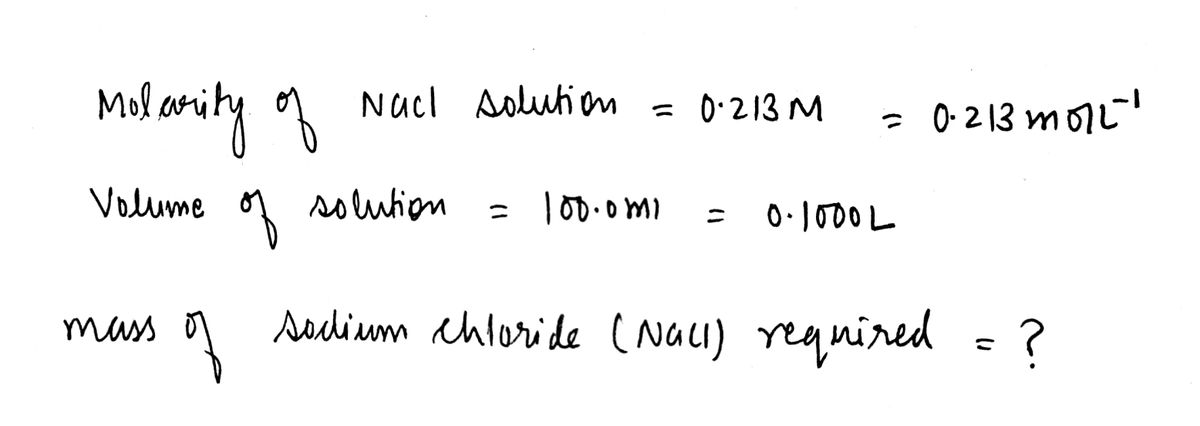 Molarity of NaCl solution = 0.213 M = 0.213 mol L⁻¹
Volume of solution = 100.0 ml = 0.1000 L
mass of sodium chloride (NaCl) required = ?